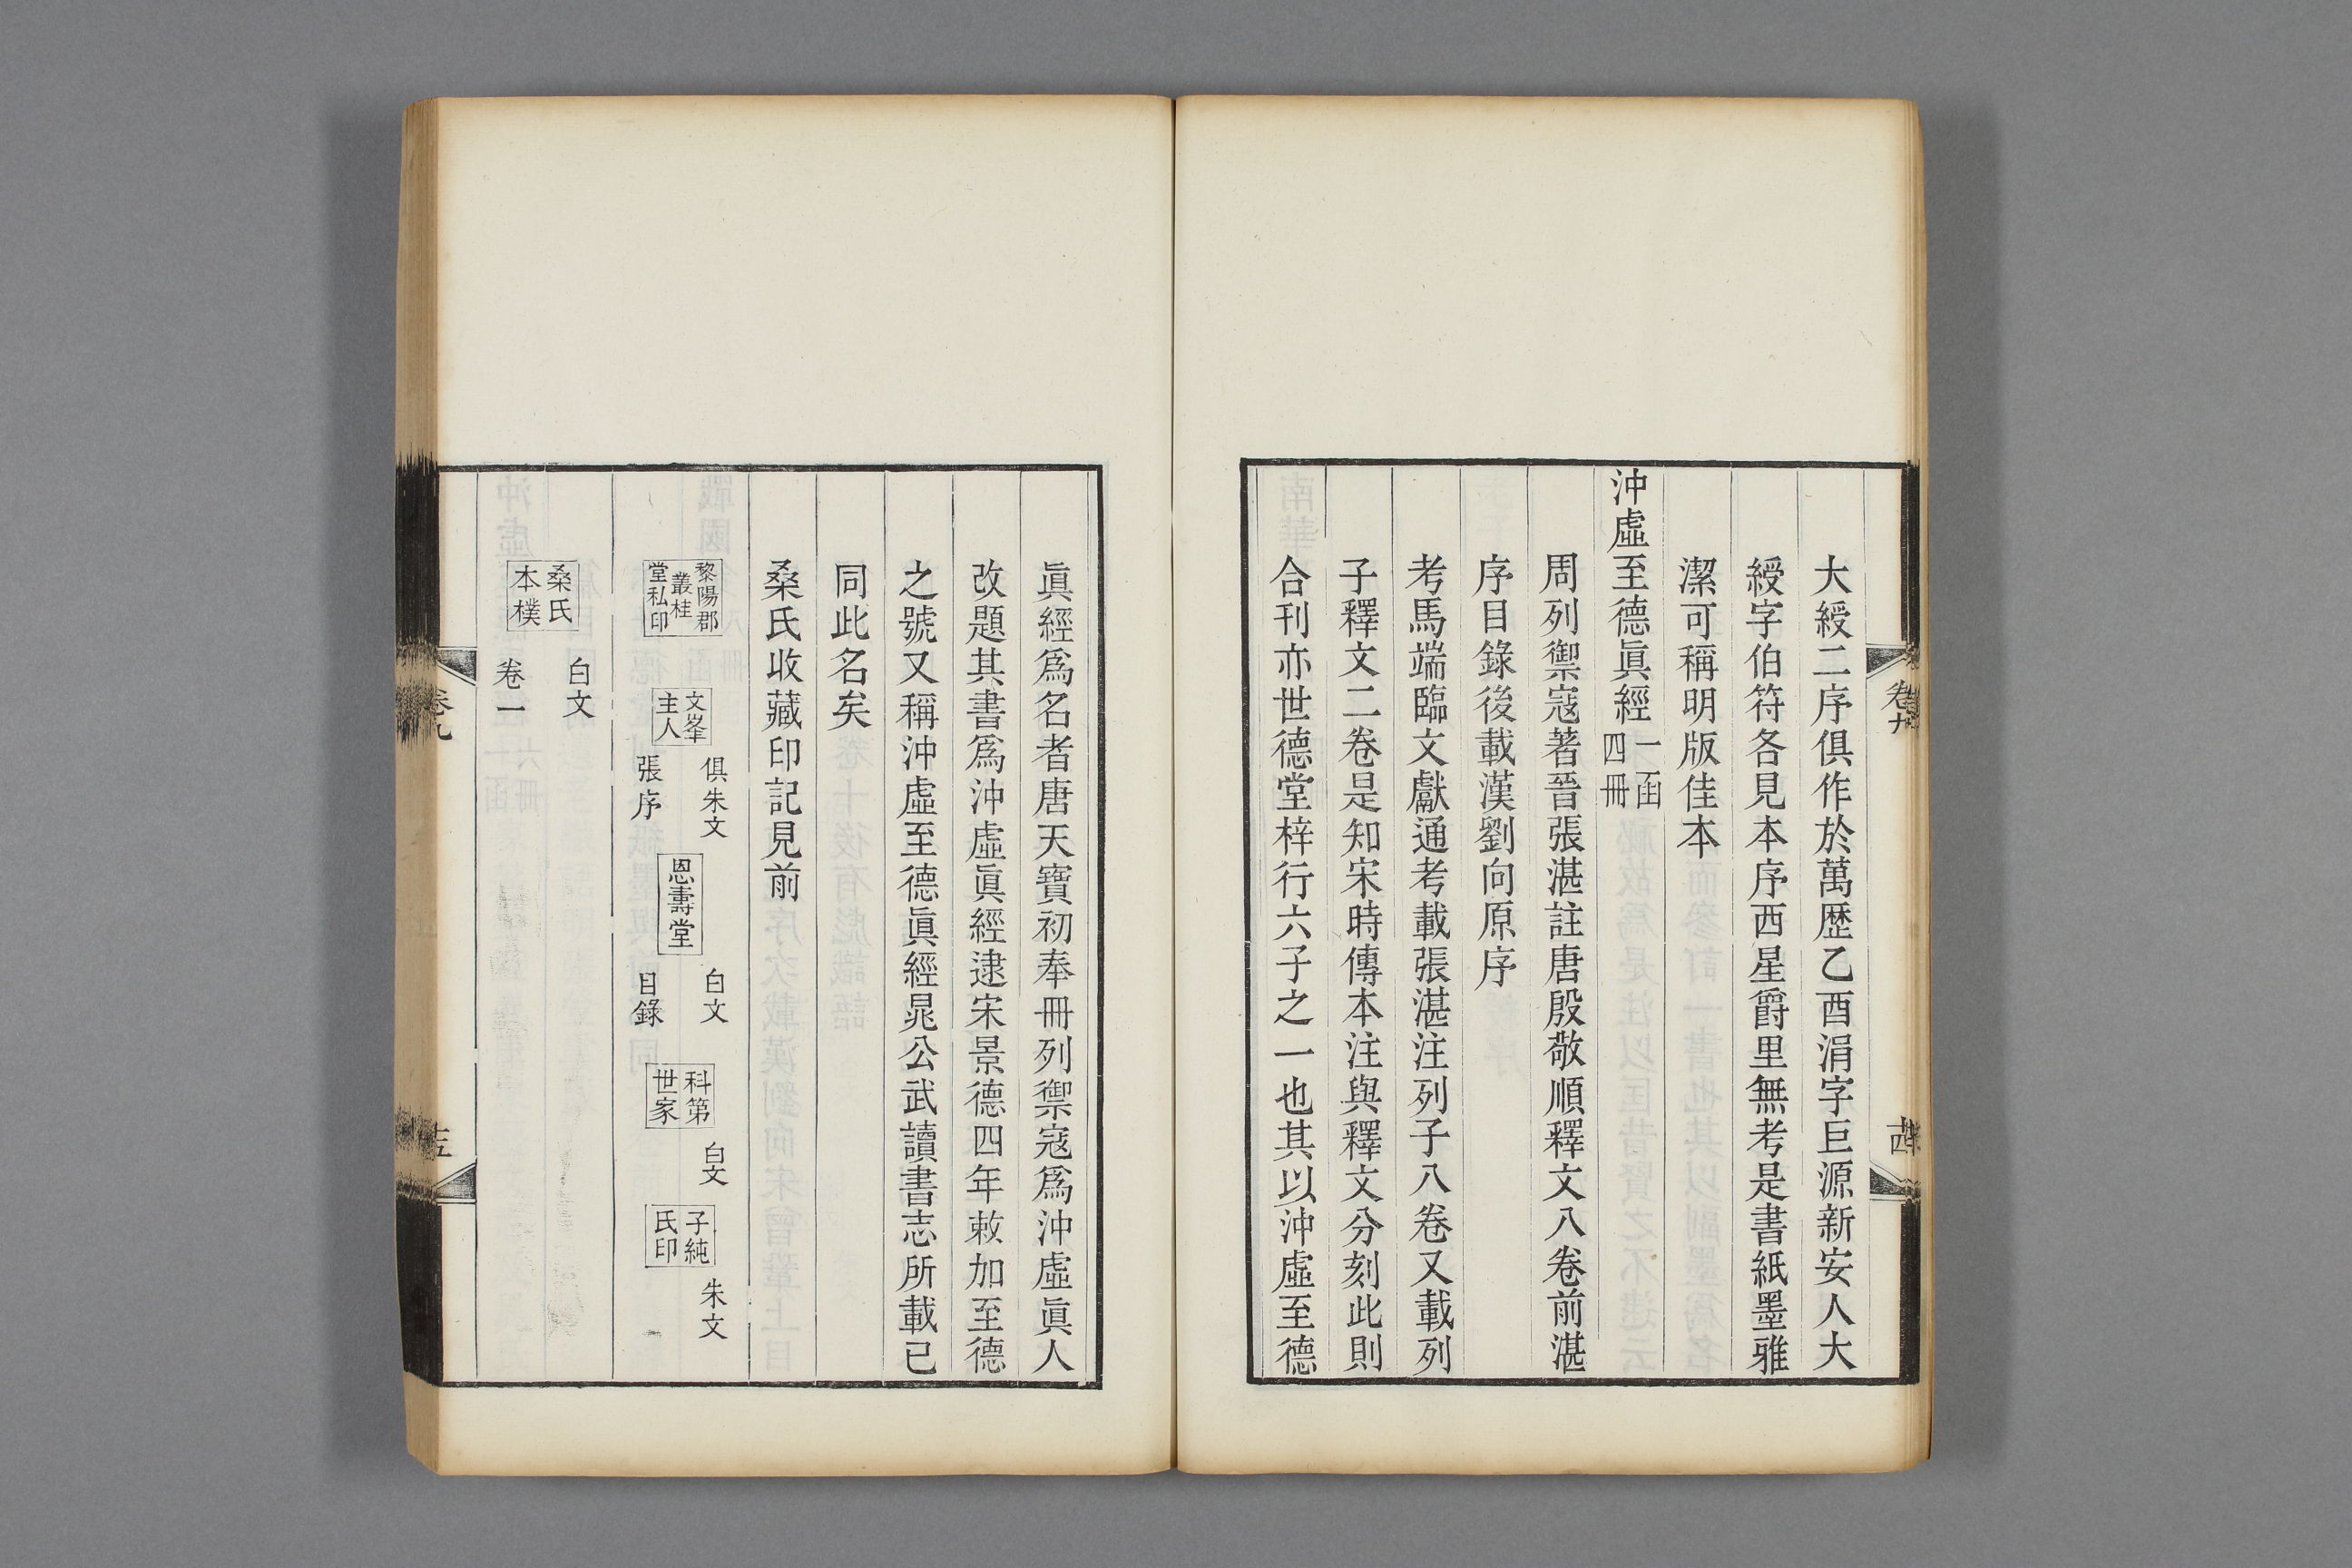 大綬二序俱作於萬歷乙酉涓字巨源新安人大
綬字伯符各見本序西星爵里無考是書紙墨雅
潔可稱明版佳本
沖虛至德眞經一函
四冊
周列禦寇著晉張湛註唐殷敬順釋文八卷前湛
序目錄後載漢劉向原序
考馬端臨文獻通考載張湛注列子八卷又載列
子釋文二卷是知宋時傳本注與釋文分刻此則
合刊亦世德堂梓行六子之一也其以沖虛至德
卷九
眞經爲名者唐天寶初奉冊列禦寇爲沖虛眞人
改題其書爲沖虛眞經逮宋景德四年敕加至德
之號又稱沖虛至德眞經晁公武讀書志所載已
同此名矣
桑氏收藏印記見前
黎陽郡
叢桂
堂私印
文峯
主人
俱朱文
張序
恩壽堂
白文
目錄
科第
世家
白文
子純
氏印
朱文
桑氏
本樸
白文
卷一
卷九